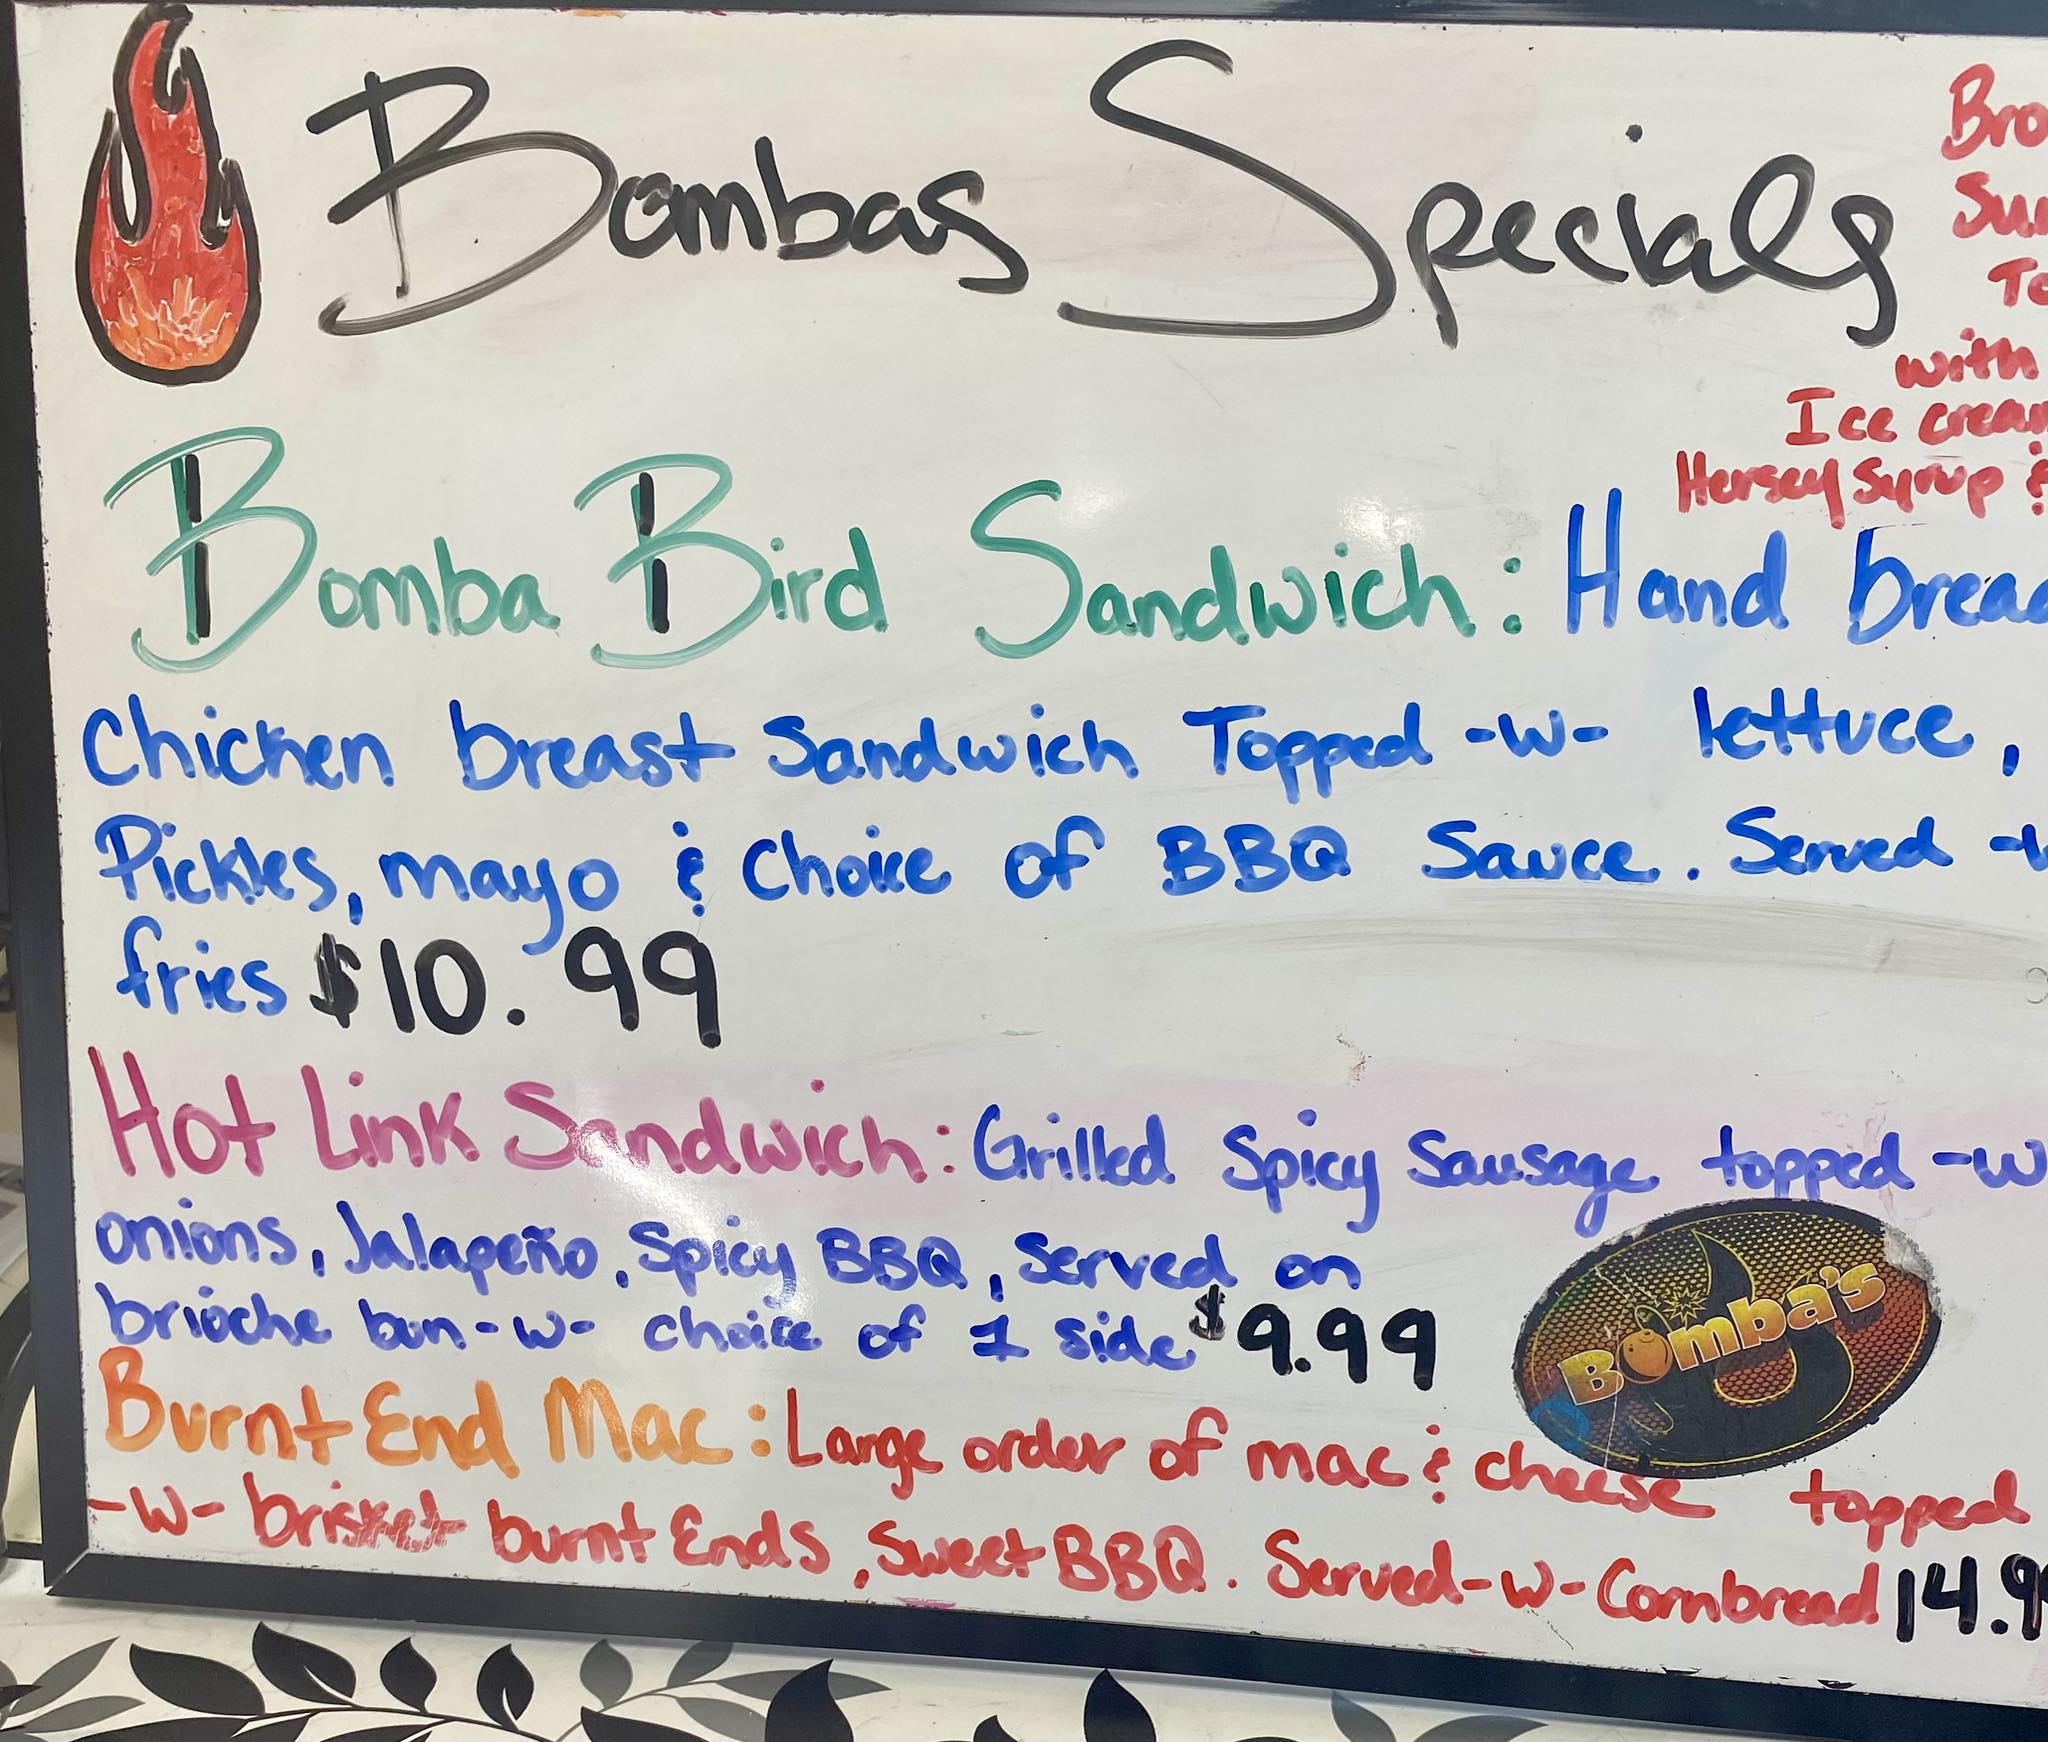 Bombas Specials
Bro
Su
To
with
Ice cream
Hersey Syrup &
Bomba Bird Sandwich: Hand bread
Chicken breast Sandwich Topped -w- lettuce,
Pickles, mayo & Choice of BBQ Sauce. Served -w
fries $10.99
Hot Link Sandwich: Grilled Spicy Sausage topped -w
onions, Jalapeño, Spicy BBQ, Served on
brioche bun -w- choice of 1 side $9.99
Bomba's
Burnt End Mac: Large order of mac & cheese topped
-w- brisket burnt Ends, Sweet BBQ. Served -w- Cornbread 14.99